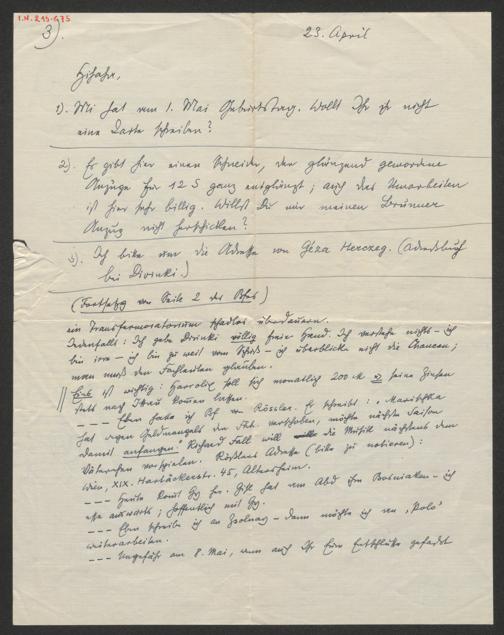 I.N. 219.675
3).
23. April
1). Mi hat am 1. Mai Geburtstag. Wollt Ihr ihr nicht
eine Karte schreiben?
2). Es gibt hier einen Schneider, der glänzend gewordene
Anzüge für 12 S ganz entglänzt; auch das Umarbeiten
ist hier sehr billig. Willst Du mir meinen Brünner
Anzug nicht herschicken?
3). Ich bitte um die Adresse von Géza Herczeg. (Adressbuch
bei Divinki.)
(Fortsetzg von Seite 2 des Bfes)
ein Transformatorium schadlos überdauern.
Jedenfalls: Ich gebe Divinki völlig freie Hand. Ich verstehe nichts – ich
bin irre – ich bin zu weit vom Schuß – ich überblicke nicht die Chancen;
man muß den Fachleuten glauben.
Eins ist wichtig: soll sich monatlich 200 M seine Zinsen
statt nach kommen lassen.
--- Eben habe ich Bf von Rössler. Er schreibt: "Marischka
hat wegen Geldmangels den verschoben, möchte nächste Saison
damit anfangen" Richard Fall will die Musik nächstens den
vorspielen. Rösslers Adresse (bitte zu notieren):
Wien, XIX. Hartäckerstr. 45, Altersheim.
--- Heute kommt Gg her. hat am Abd – ich
esse auswärts; hoffentlich mit Gg.
--- Eben schreibe ich an Zsolnay – dann möchte ich am "Polo"
weiterarbeiten.
--- Ungefähr am 8. Mai, wenn auch Ihr Eure Entschlüsse gefasst